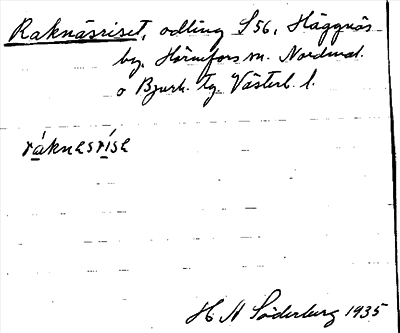 Raknäsriset, odling S56, Häggnäs
by, Hörnefors sn. Nordmal.
o Bjurh. tg. Västerb. l.
ráknesríse
H N Söderberg 1935